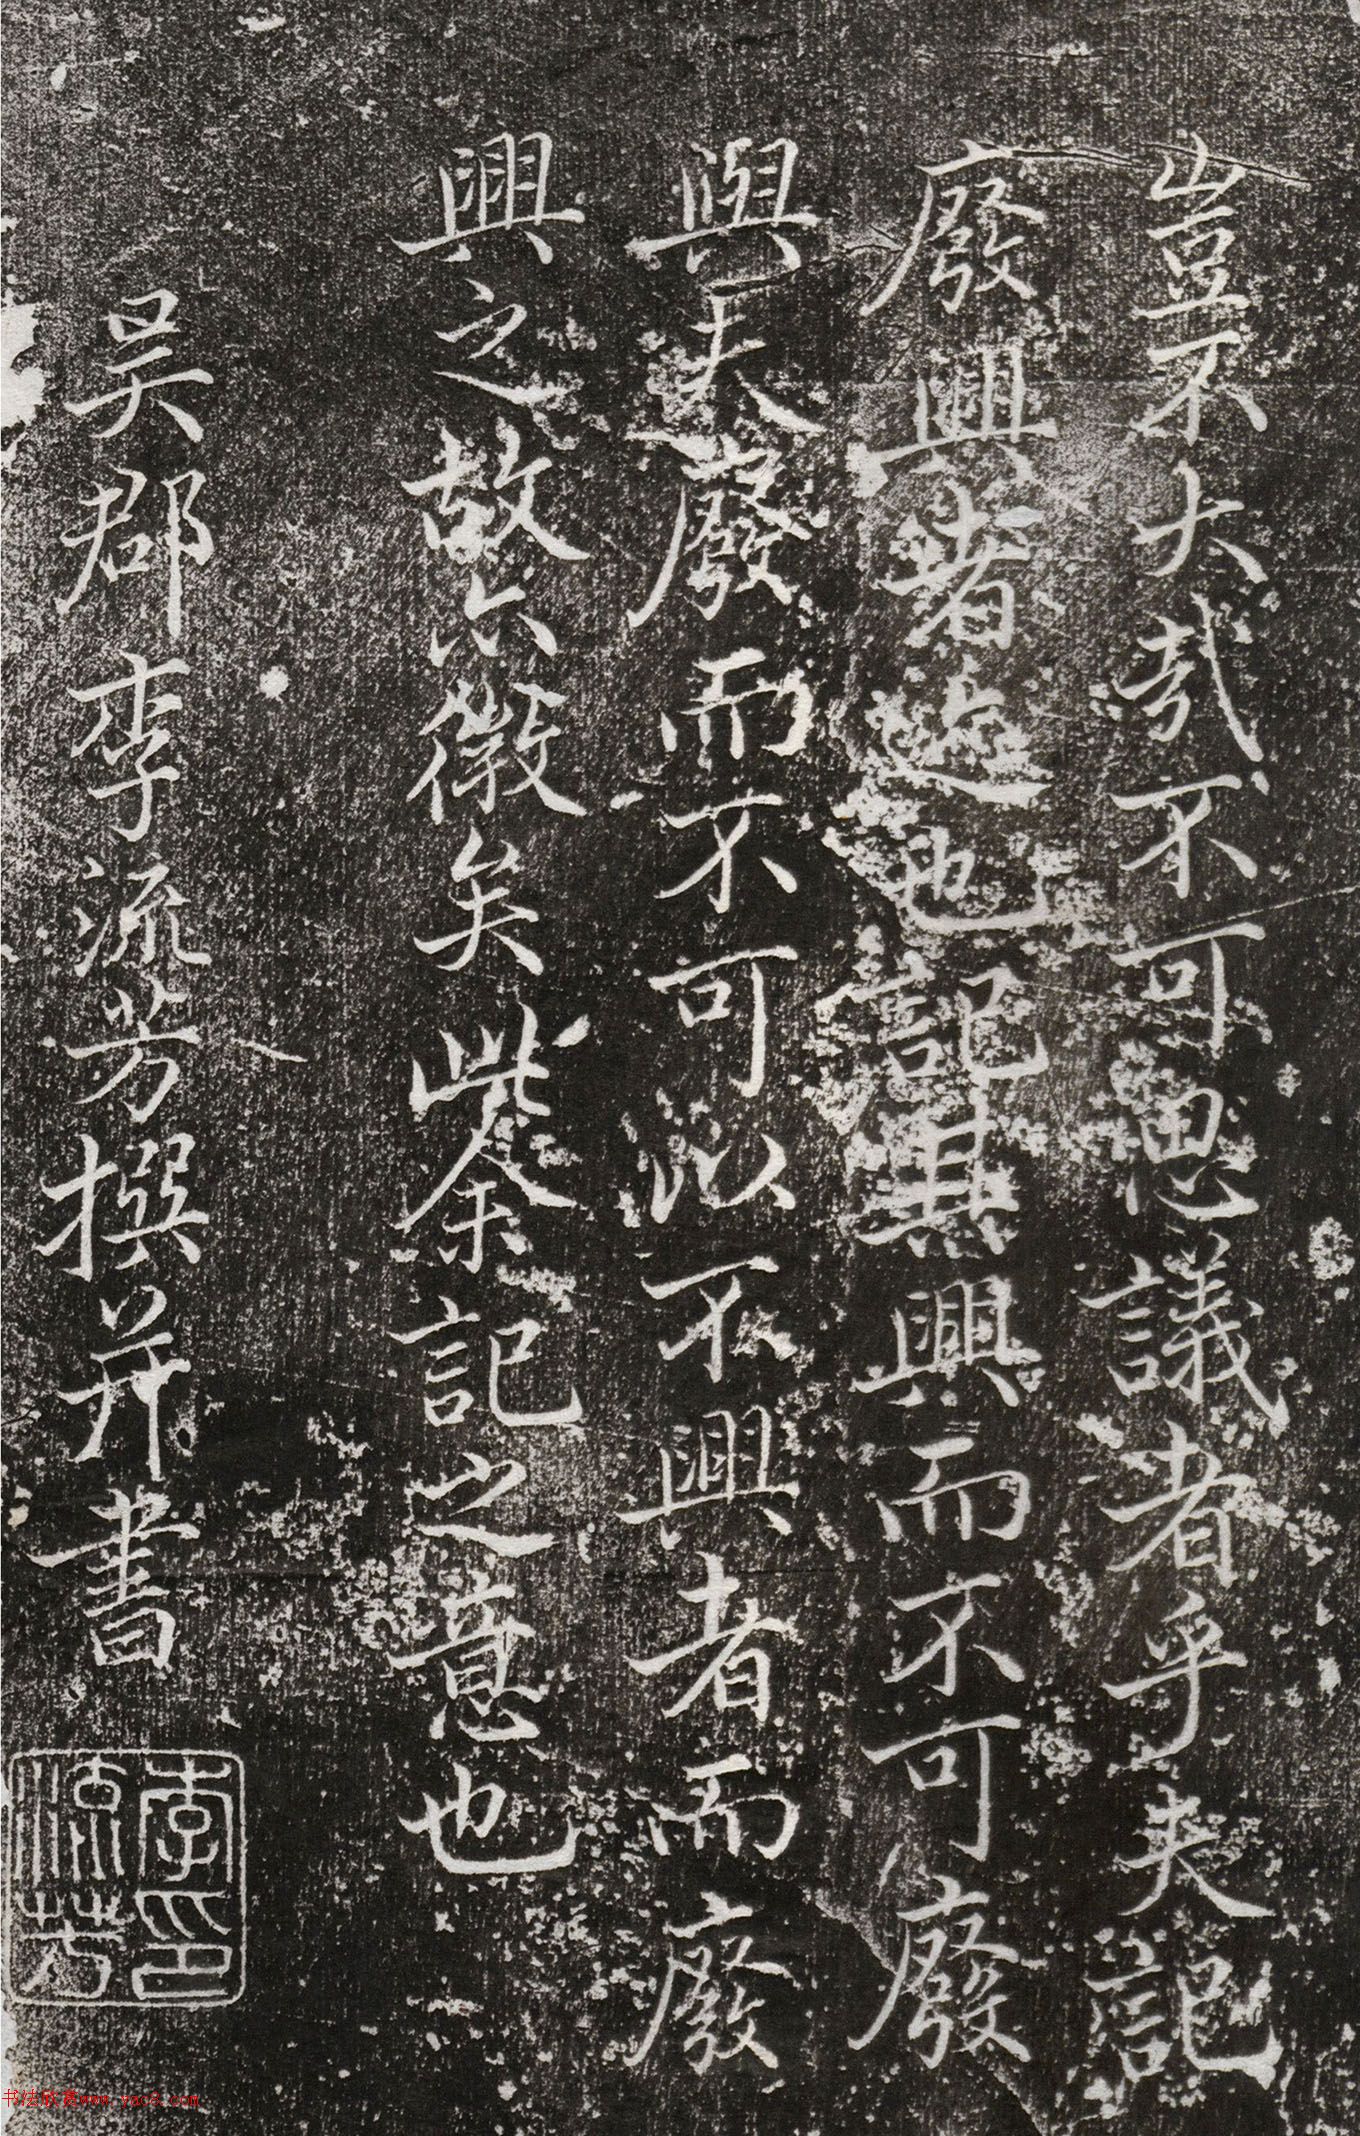 豈不大哉不可思議者乎夫記
廢興者迹也記其興而不可廢
與夫廢而不可以不興者而廢
興之故亦微矣此余記之意也
吳郡李流芳撰并書
李印流芳
书法欣赏www.yac8.com